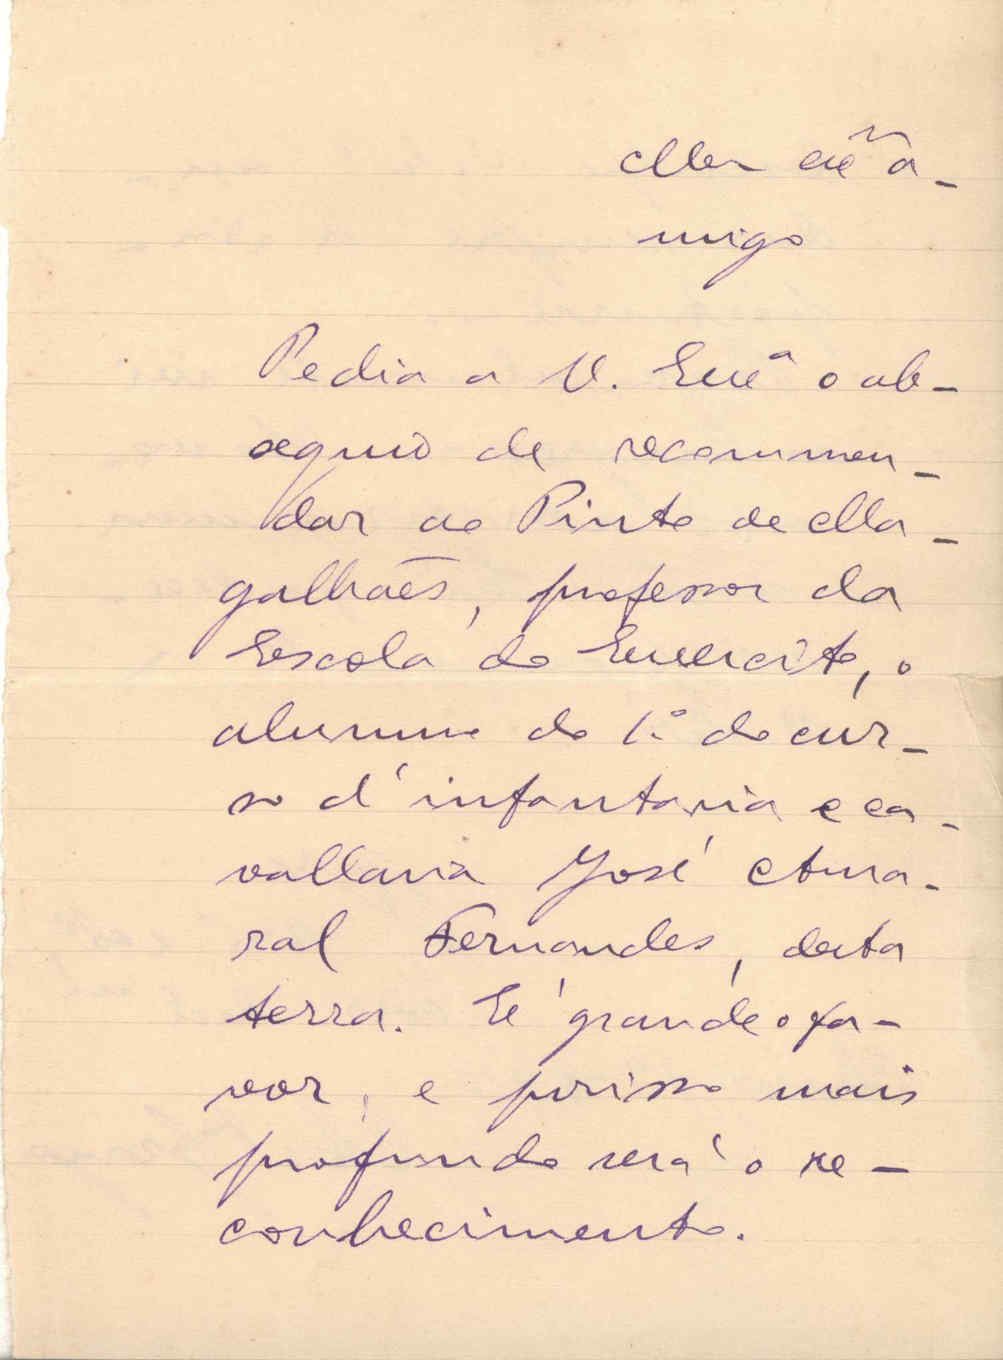 Meu cẽ a-
migo
Pedia a V. Excª o ob-
sequio de recommen-
dar ao Pinto de Ma-
galhães, professor da
Escola do Exercito, o
alumno do 1.º do cur-
so d'infantaria e ca-
vallaria José Ama-
ral Fernandes, desta
terra. É grande o fa-
vor, e porisso mais
profundo será o re-
conhecimento.